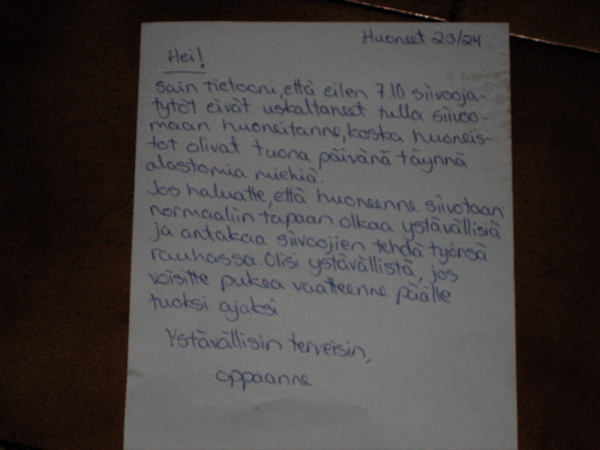 Huoneet 23/24
Hei!
sain tietooni, että eilen 7.10 siivooja-
tytöt eivät uskaltaneet tulla siivoo-
maan huoneitanne, koska huoneis-
tot olivat tuona päivänä täynnä
alastomia miehiä.
Jos haluatte, että huoneenne siivotaan
normaaliin tapaan olkaa ystävällisiä
ja antakaa siivoojien tehdä työnsä
rauhassa. Olisi ystävällistä, jos
voisitte pukea vaatteenne päälle
tuoksi ajaksi.
Ystävällisin terveisin,
oppaanne